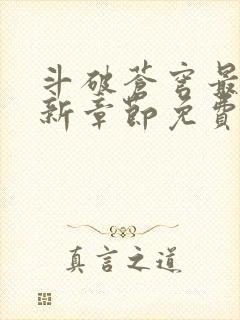 斗破苍穹最
新章节免费
真言之道